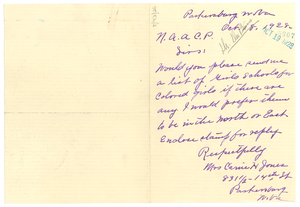 Parkersburg W. Va
Oct 18, 1922
N. A. A. C. P.
Sirs;
Would you please send me
a list of Girls Schools for
Colored girls if there are
any I would prefer them
to be in the north or East
Enclose stamp for reply
Respectfully
Mrs Carrie H Jones
831½ - 14th St
Parkersburg
W. Va